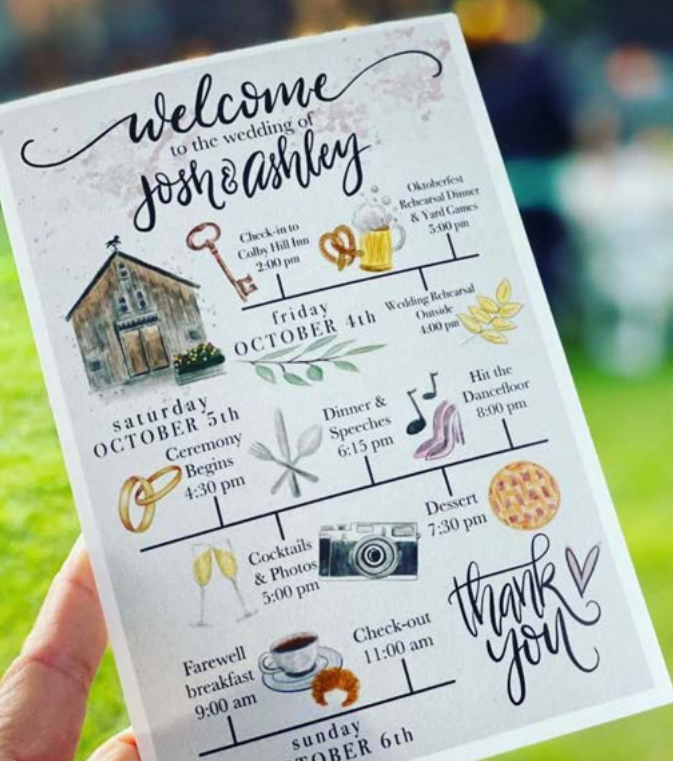 welcome
to the wedding of
Josh & Ashley
Check-in to
Colby Hill Inn
2:00 pm
Oktoberfest
Rehearsal Dinner
& Yard Games
5:00 pm
friday
OCTOBER 4th
Wedding Rehearsal
Outside
4:00 pm
saturday
OCTOBER 5th
Ceremony
Begins
4:30 pm
Dinner &
Speeches
6:15 pm
Hit the
Dancefloor
8:00 pm
Cocktails
& Photos
5:00 pm
Dessert
7:30 pm
thank
you
Farewell
breakfast
9:00 am
Check-out
11:00 am
sunday
TOBER 6th